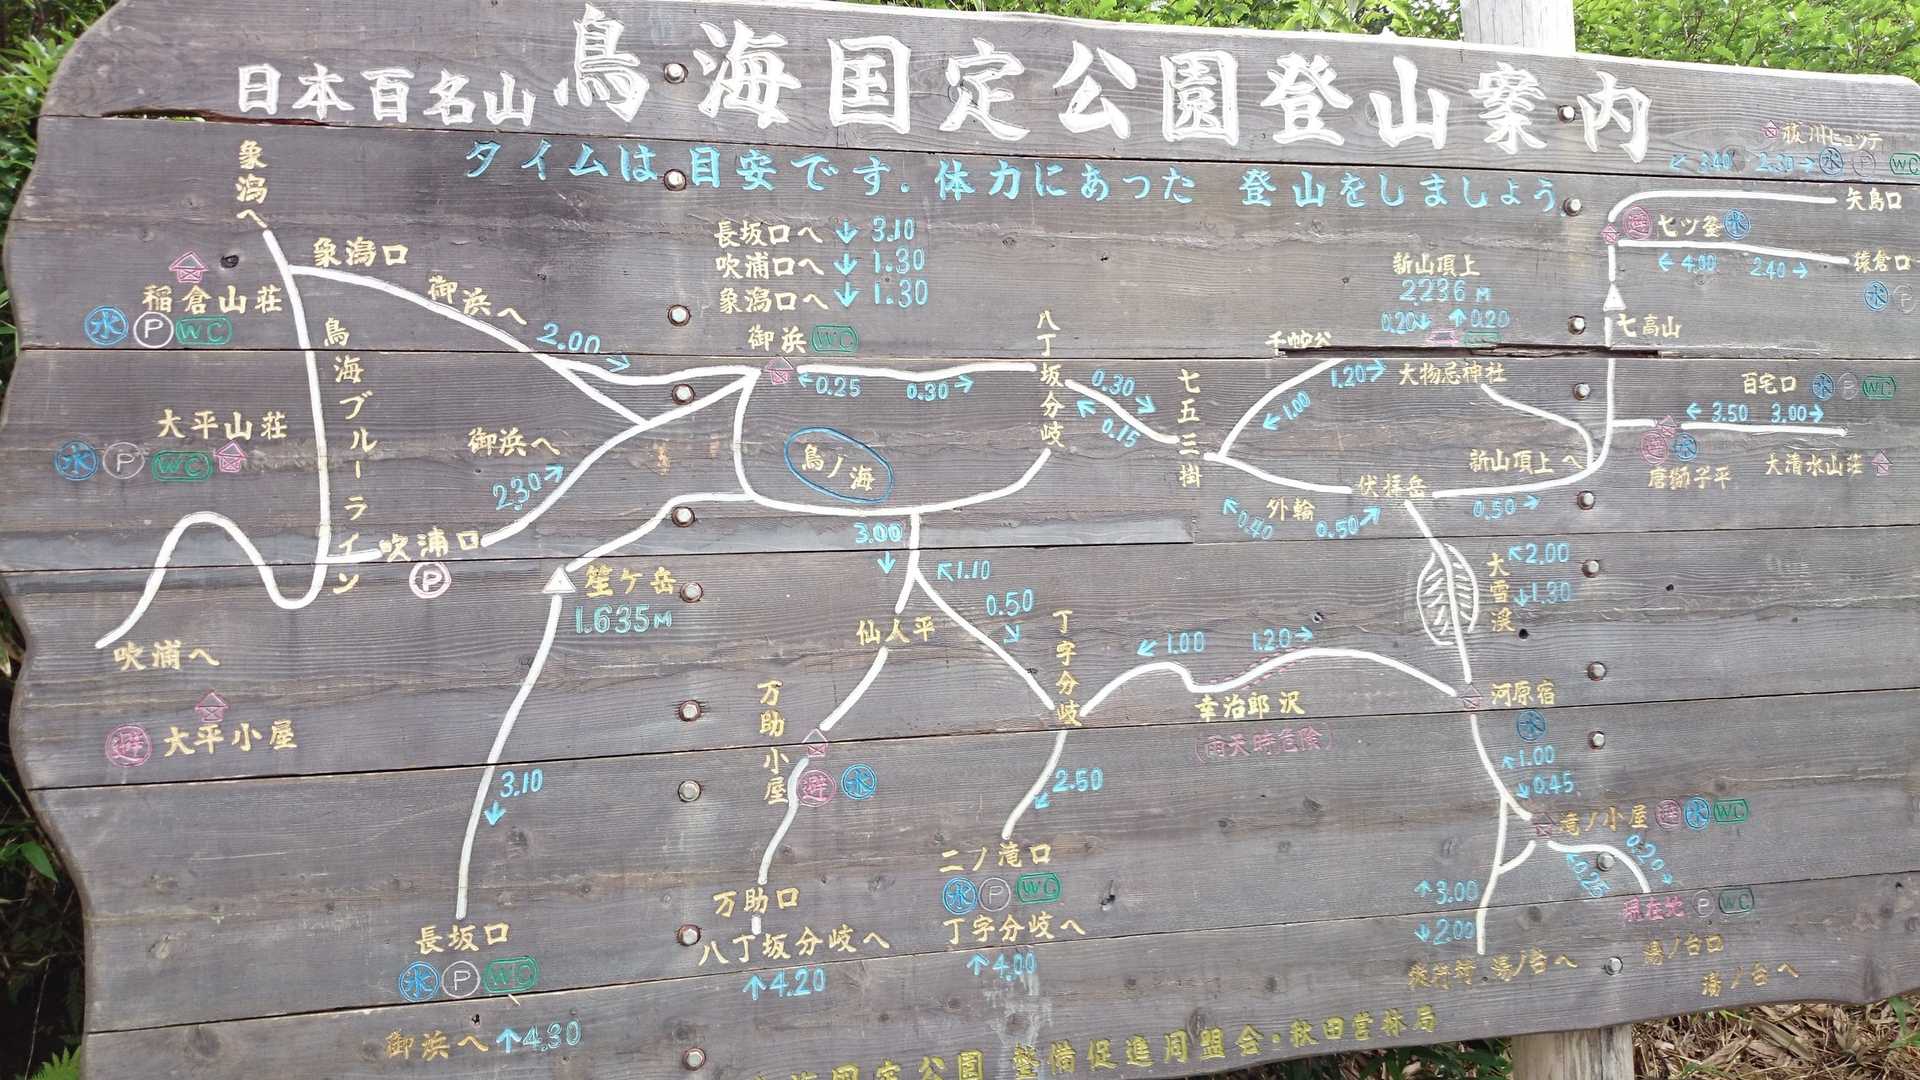 日本百名山 鳥海国定公園登山案内
タイムは目安です.体力にあった 登山をしましょう
象潟へ
象潟口
御浜へ
2.00→
稲倉山荘
水 P WC
鳥海ブルーライン
大平山荘
水 P WC
御浜へ
2.30
吹浦口
P
吹浦へ
避 大平小屋
長坂口へ ↓ 3.10
吹浦口へ ↓ 1.30
象潟口へ ↓ 1.30
御浜 WC
←0.25
0.30→
八丁坂分岐
0.30
0.15
七五三掛
鳥ノ海
笙ケ岳
1.635M
3.10
↓
長坂口
水 P WC
御浜へ ↑4.30
3.00
↓
1.10
0.50
仙人平
万助小屋
避 水
万助口
八丁坂分岐へ
↑4.20
丁字分岐
2.50
二ノ滝口
水 P WC
丁字分岐へ
↑4.00
←1.00
1.20→
幸治郎沢
(雨天時危険)
新山頂上
2.236M
0.20↓ ↑0.20
1.20→
大物忌神社
1.00
外輪
0.40
0.50
伏拝岳
0.50→
新山頂上へ
大雪渓
2.00
↓1.30
河原宿
水
1.00
0.45
滝ノ小屋 避 水 WC
0.20
0.25
現在地 P WC
湯ノ台口
湯ノ台へ
↑3.00
↓2.00
3.40 2.30→ 水 P WC
矢島口
避 七ツ釜 水
←4.00 2.40→
猿倉口
水 P
七高山
百宅口 水 P WC
←3.50 3.00→
避 水
唐獅子平
大清水山荘
国定公園 整備促進同盟会・秋田営林局